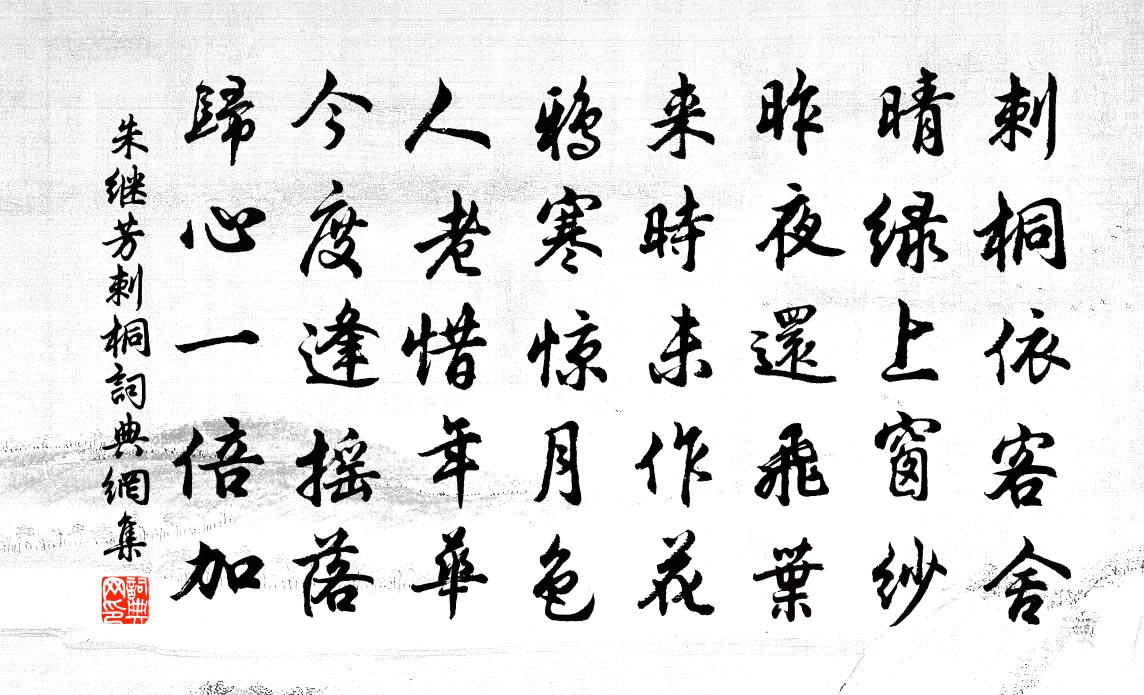 刺桐依客舍
晴绿上窗纱
昨夜還飛葉
来時未作花
鴉寒惊月色
人老惜年華
今度逢摇落
歸心一倍加
朱继芳刺桐詞典網集
詞典网印